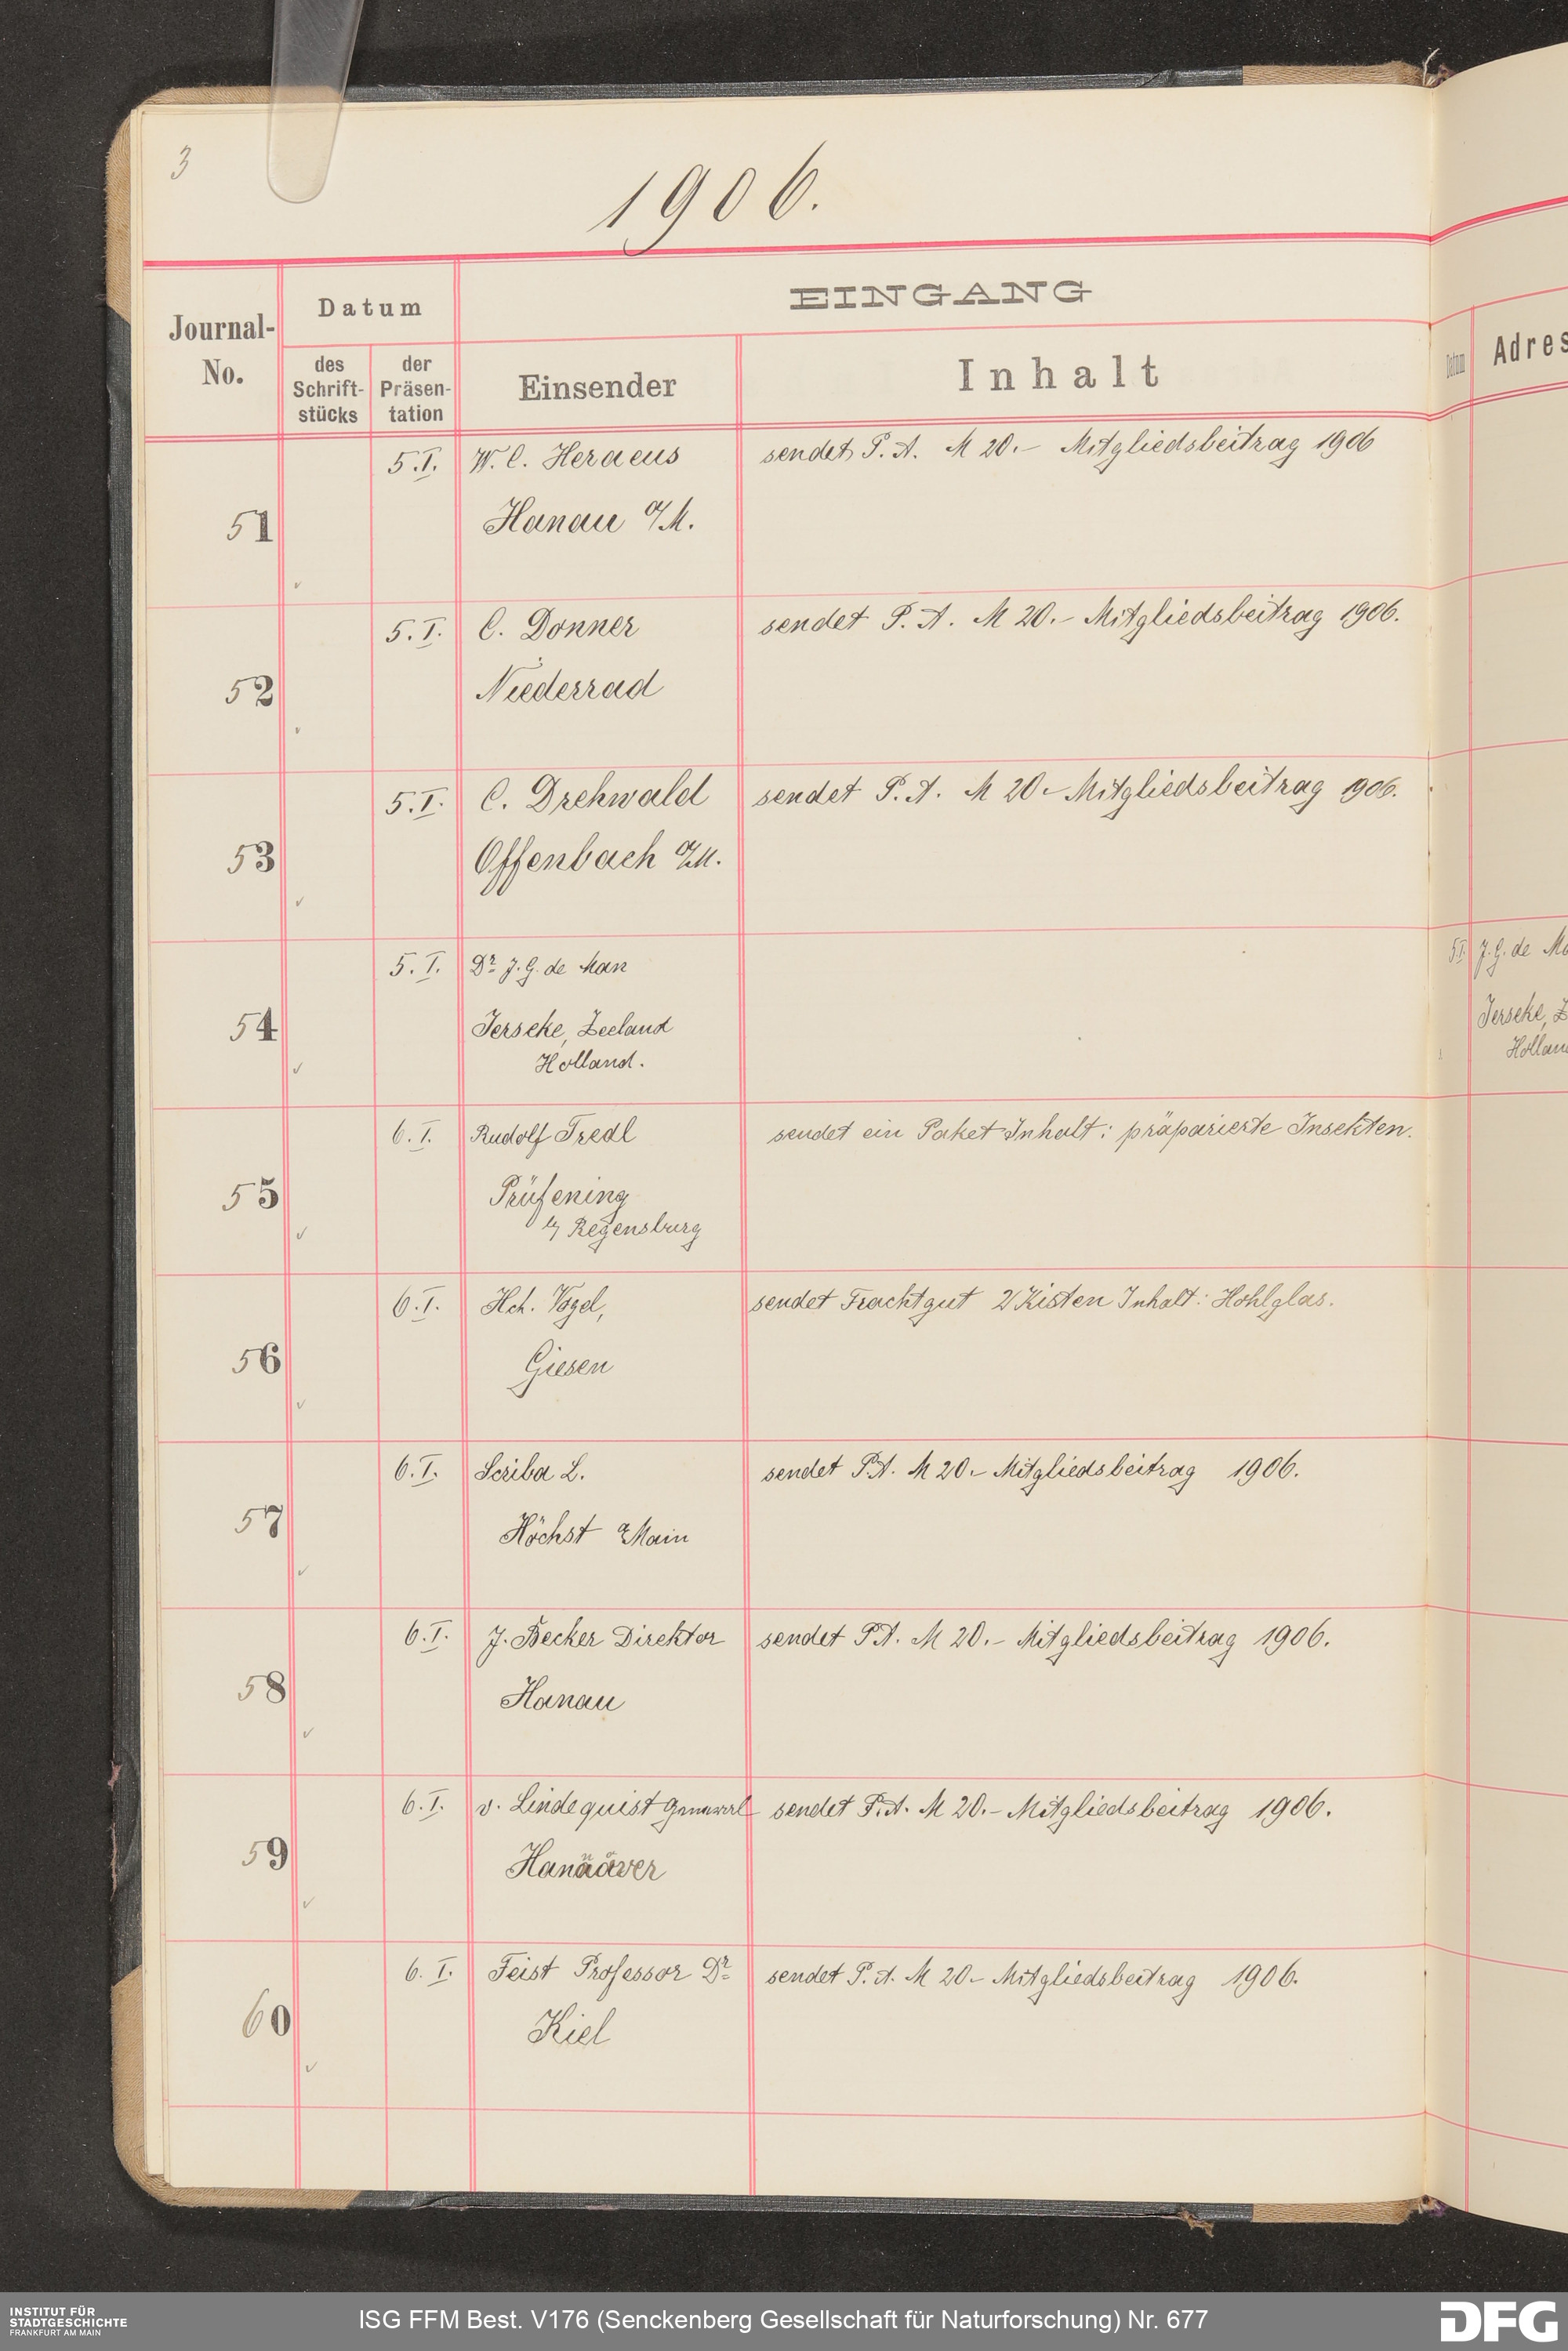 3
1906.
EINGANG
Datum
Journal-
No.
des
Schrift-
stücks
der
Präsen-
tation
Einsender
Inhalt
Datum
Adres
5.I. W. C. Heraeus sendet P. A. M 20.- Mitgliedsbeitrag 1906
51 Hanau a/M.
5.I. C. Donner sendet P. A. M 20.- Mitgliedsbeitrag 1906.
52 Niederrad
5.I. C. Drehwald sendet P. A. M 20.- Mitgliedsbeitrag 1906.
53 Offenbach a/M.
5.I. Dr J. G. de Man
54 Jerseke, Zeeland
Holland.
5I J. G. de Ma
Jerseke, Z
Hollan
6.I. Rudolf Tredl sendet ein Paket Inhalt: präparierte Insekten.
55 Prüfening
b/ Regensburg
6.I. Hch. Vogel, sendet Frachtgut 2 Kisten Inhalt: Hohlglas.
56 Giesen
6.I. Scriba L. sendet P.A. M 20.- Mitgliedsbeitrag 1906.
57 Höchst a/Main
6.I. J. Becker Direktor sendet P.A. M 20.- Mitgliedsbeitrag 1906.
58 Hanau
6.I. v. Lindequist General sendet P.A. M 20.- Mitgliedsbeitrag 1906.
59
6.I. Feist Professor Dr sendet P. A. M 20.- Mitgliedsbeitrag 1906.
60 Kiel
INSTITUT FÜR
STADTGESCHICHTE
FRANKFURT AM MAIN
ISG FFM Best. V176 (Senckenberg Gesellschaft für Naturforschung) Nr. 677
DFG